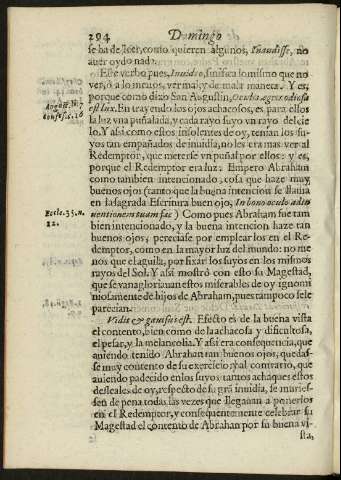 294 Domingo
se ha de leer, como quieren algunos, Inaudisse, no
auer oydo nada.
Este verbo pues, Inuideo, sinifica lo mismo que no
ver, ò a lo menos, ver mal, y de mala manera. Y es,
porque como dixo San Augustin, Oculis ægris odiosa
est lux. En trayendo los ojos achacosos, es, para ellos
la luz vna puñalada, y cada rayo suyo vn rayo del cie
lo. Y assi como estos insolentes de oy, tenian los su-
yos tan empañados de inuidia, no les era mas ver al
Redemptor, que meterse vn puñal por ellos: y es,
porque el Redemptor era luz. Empero Abraham
como tambien intencionado, cosa que haze muy
buenos ojos (tanto que la buena intencion se llama
en la sagrada Escritura buen ojo, In bono oculo adin
uentionem tuam fac) Como pues Abraham fue tam
bien intencionado, y la buena intencion haze tan
buenos ojos; pereciase por emplear los en el Re-
demptor, como en la mayor luz del mundo: no me
nos que el aguila, por fixar los suyos en los mismos
rayos del Sol. Y assi mostrò con esto su Magestad,
que se vanagloriauan estos miserables de oy ignomi
niosamente de hijos de Abraham, pues tampoco se le
parecian.
Vidit & gauisus est. Efecto es de la buena vista
el contento, bien como de la achacosa y dificultosa,
el pesar, y la melancolia. Y assi era consequencia, que
auiendo tenido Abraham tan buenos ojos, quedas-
se muy contento de su exercicio; y al contrario, que
auiendo padecido en los suyos tantos achaques estos
desleales de oy, respecto de su grã inuidia, se muries-
sen de pena todas las vezes que llegauan a ponerlos
en el Redemptor, y consequentemente celebrar su
Magestad el contento de Abraham por su buena vi-
sta,
August. li. 7
confess. c. 16
Eccle. 35. n.
12.